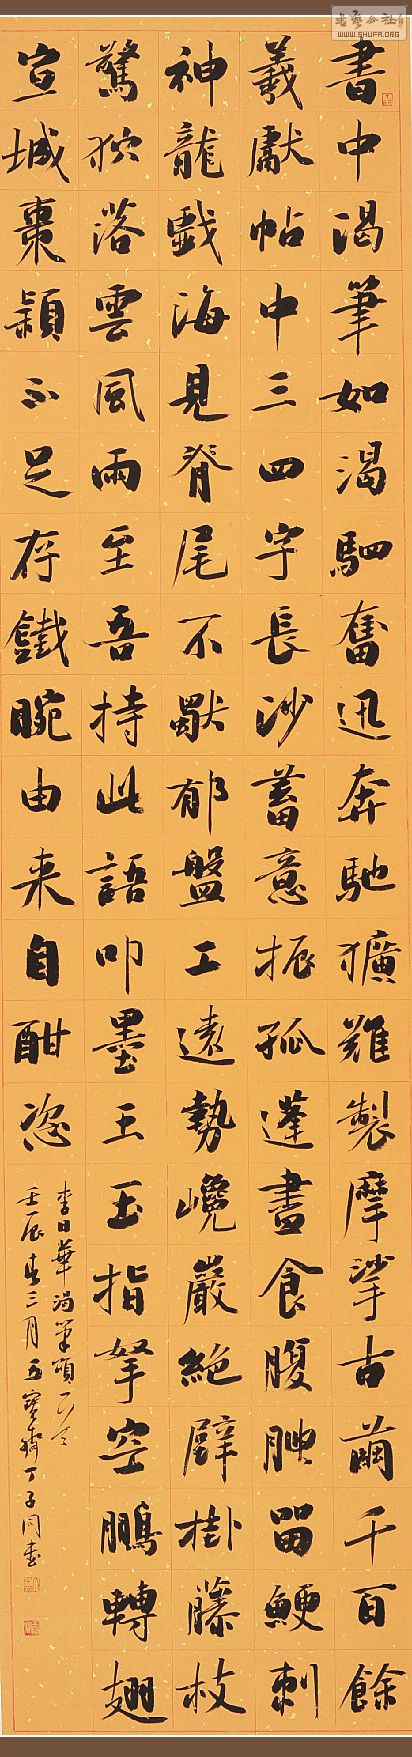 書藝公社
WWW.SHUFA.ORG
書中渴筆如渴駟奮迅奔馳獷難製摩挲古繭千百餘
羲獻帖中三四字長沙蓄意振孤蓬盡食腹腴留鯁刺
神龍戲海見脊尾不猒郁盤工遠勢巉巖絕壁掛藤枝
驚狖落雲風雨至吾持此語叩墨王玉指拏空鵬轉翅
宣城棗穎不足存鐵腕由來自酣恣
李日華渴筆頌一首
壬辰春三月五寶齋丁子同書